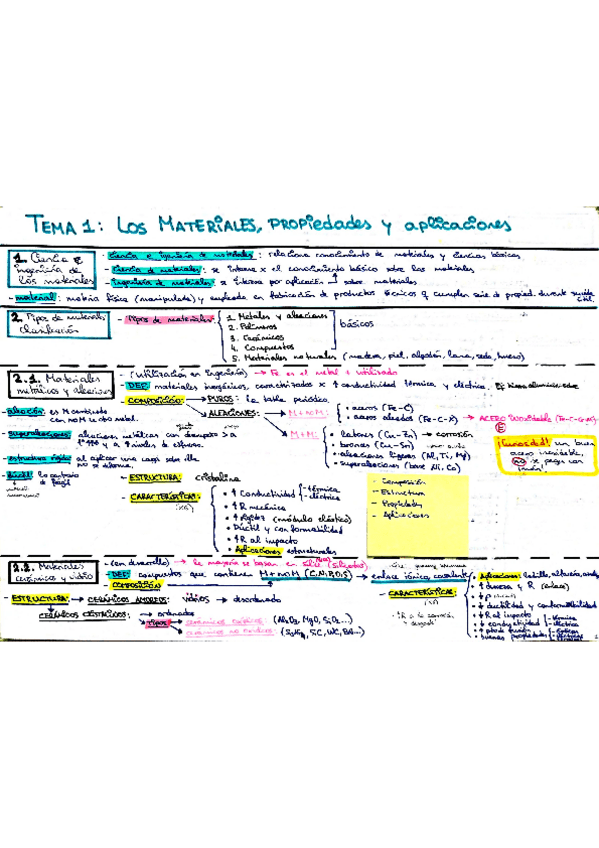 TEMA 1: LOS MATERIALES, PROPIEDADES y aplicaciones
1. Ciencia e ingeniería de los materiales
- Ciencia e ingeniería de materiales: relaciona conocimiento de materiales y ciencias básicas.
- Ciencia de materiales: se interesa x el conocimiento básico sobre los materiales.
- Ingeniería de materiales: se interesa por aplicación sobre materiales.
- material: matria física (manipulada) y empleada en fabricación de productos técnicos q cumplen serie de propied. durante su vida útil.
2. Tipos de materiales, clasificación
- Tipos de materiales:
1. Metales y aleaciones
2. Polímeros
3. Cerámicos
4. Compuestos
básicos
5. Materiales naturales (madera, piel, algodón, lana, seda, hueso)
2.1. Materiales metálicos y aleaciones
- (utilización en Ingeniería) → Fe es el metal + utilizado
- DEF: materiales inorgánicos, caracterizados x ↑ conductividad térmica y eléctrica.
- COMPOSICIÓN: → PUROS: la tabla periódica.
→ ALEACIONES: → M + no M:
• aceros (Fe-C)
• aceros aleados (Fe-C-X) → ACERO Inoxidable
→ M + M:
• latones (Cu-Zn) → corrosión
• bronces (Cu-Sn)
• aleaciones ligeras (Al, Ti, Mg)
• superaleaciones (base Ni, Co)
- aleación: es M combinado con no M u otro metal.
- superaleaciones: aleaciones metálicas con
- estructura rígida: al aplicar una carga sobre ella no se deforma.
- dúctil: lo contrario de frágil
¡Curiosidad! un buen acero inoxidable, no se pega con imán!
- ESTRUCTURA: cristalina
- CARACTERÍSTICAS:
• ↑ conductividad - térmica - eléctrica
• ↑ R mecánica
• ↑ rigidez (módulo elástico)
• Dúctil y conformabilidad
• ↑ R al impacto
• Aplicaciones estructurales
- Composición
- Estructura
- Propiedades
- Aplicaciones
2.2. Materiales cerámicos y vidrio
- (en desarrollo) → la mayoría se basan en Sílice (Silicatos)
- DEF: compuestos que contienen M + no M (C, N, P, O, S) → enlace iónico, covalente
- COMPOSICIÓN
- ESTRUCTURA: → CERÁMICOS AMORFOS: vidrios → desordenado
→ CERÁMICOS CRISTALINOS: → ordenados
→ Tipos → cerámicos oxídicos (Al₂O₃, MgO, SiO₂...)
→ cerámicos no oxídicos (Si₃N₄, SiC, WC, BN...)
- CARACTERÍSTICAS:
• Aplicaciones: ladrillo, alfarería
• ↑ dureza y R (enlace)
• ↓ ductilidad y conformabilidad
• ↓ R al impacto
• ↓ conductividad - térmica - eléctrica